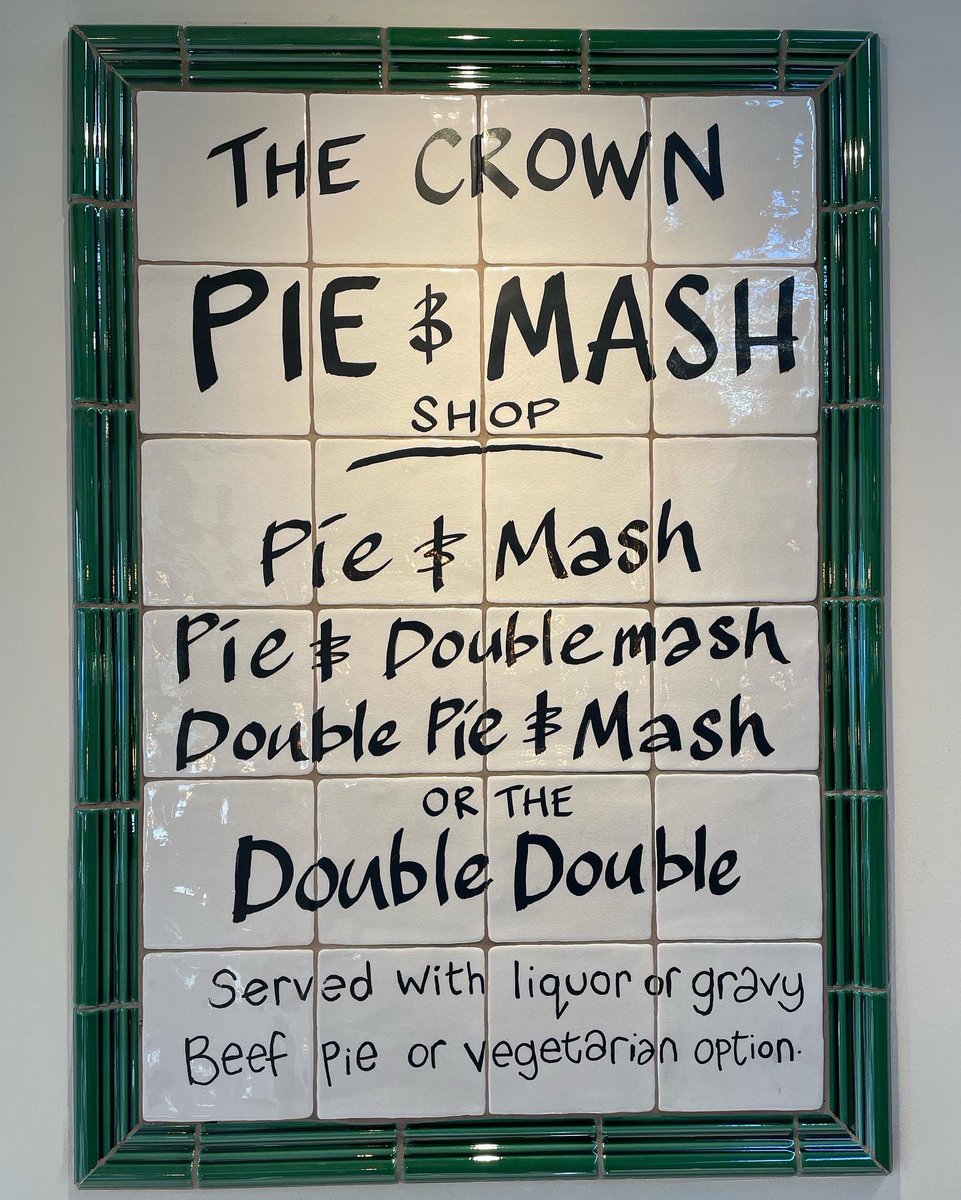 THE CROWN
PIE & MASH
SHOP
Pie & Mash
Pie & Double mash
Double Pie & Mash
OR THE
Double Double
Served with liquor or gravy
Beef pie or vegetarian option.